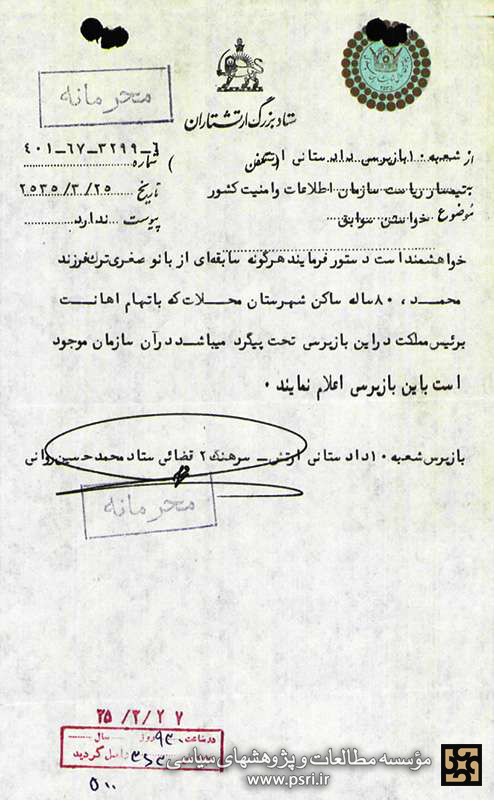 محرمانه
ستاد بزرگ ارتشتاران
شماره ۴۰۱-۶۷-۳۲۹۹-۶
از شعبه ۱۰ بازپرسی دادستانی ارتش
تاریخ ۲۵۳۵/۳/۲۵
بتیمسار ریاست سازمان اطلاعات وامنیت کشور
پیوست ندارد
موضوع خواستن سوابق
خواهشمند است دستور فرمایند هرگونه سابقه‌ای از بانو صغری ترک فرزند
محمد، ۸۰ ساله ساکن شهرستان محلات که باتهام اهانت
برئیس مملکت در این بازپرسی تحت پیگرد میباشد در آن سازمان موجود
است باین بازپرسی اعلام نمایند .
بازپرس شعبه ۱۰ دادستانی ارتش - سرهنگ ۲ قضائی ستاد محمد حسین روانی
محرمانه
۳۵/۳/۲۷
در ساعت روز سال
گردید
۵۰۰
مؤسسه مطالعات و پژوهشهای سیاسی
www.psri.ir